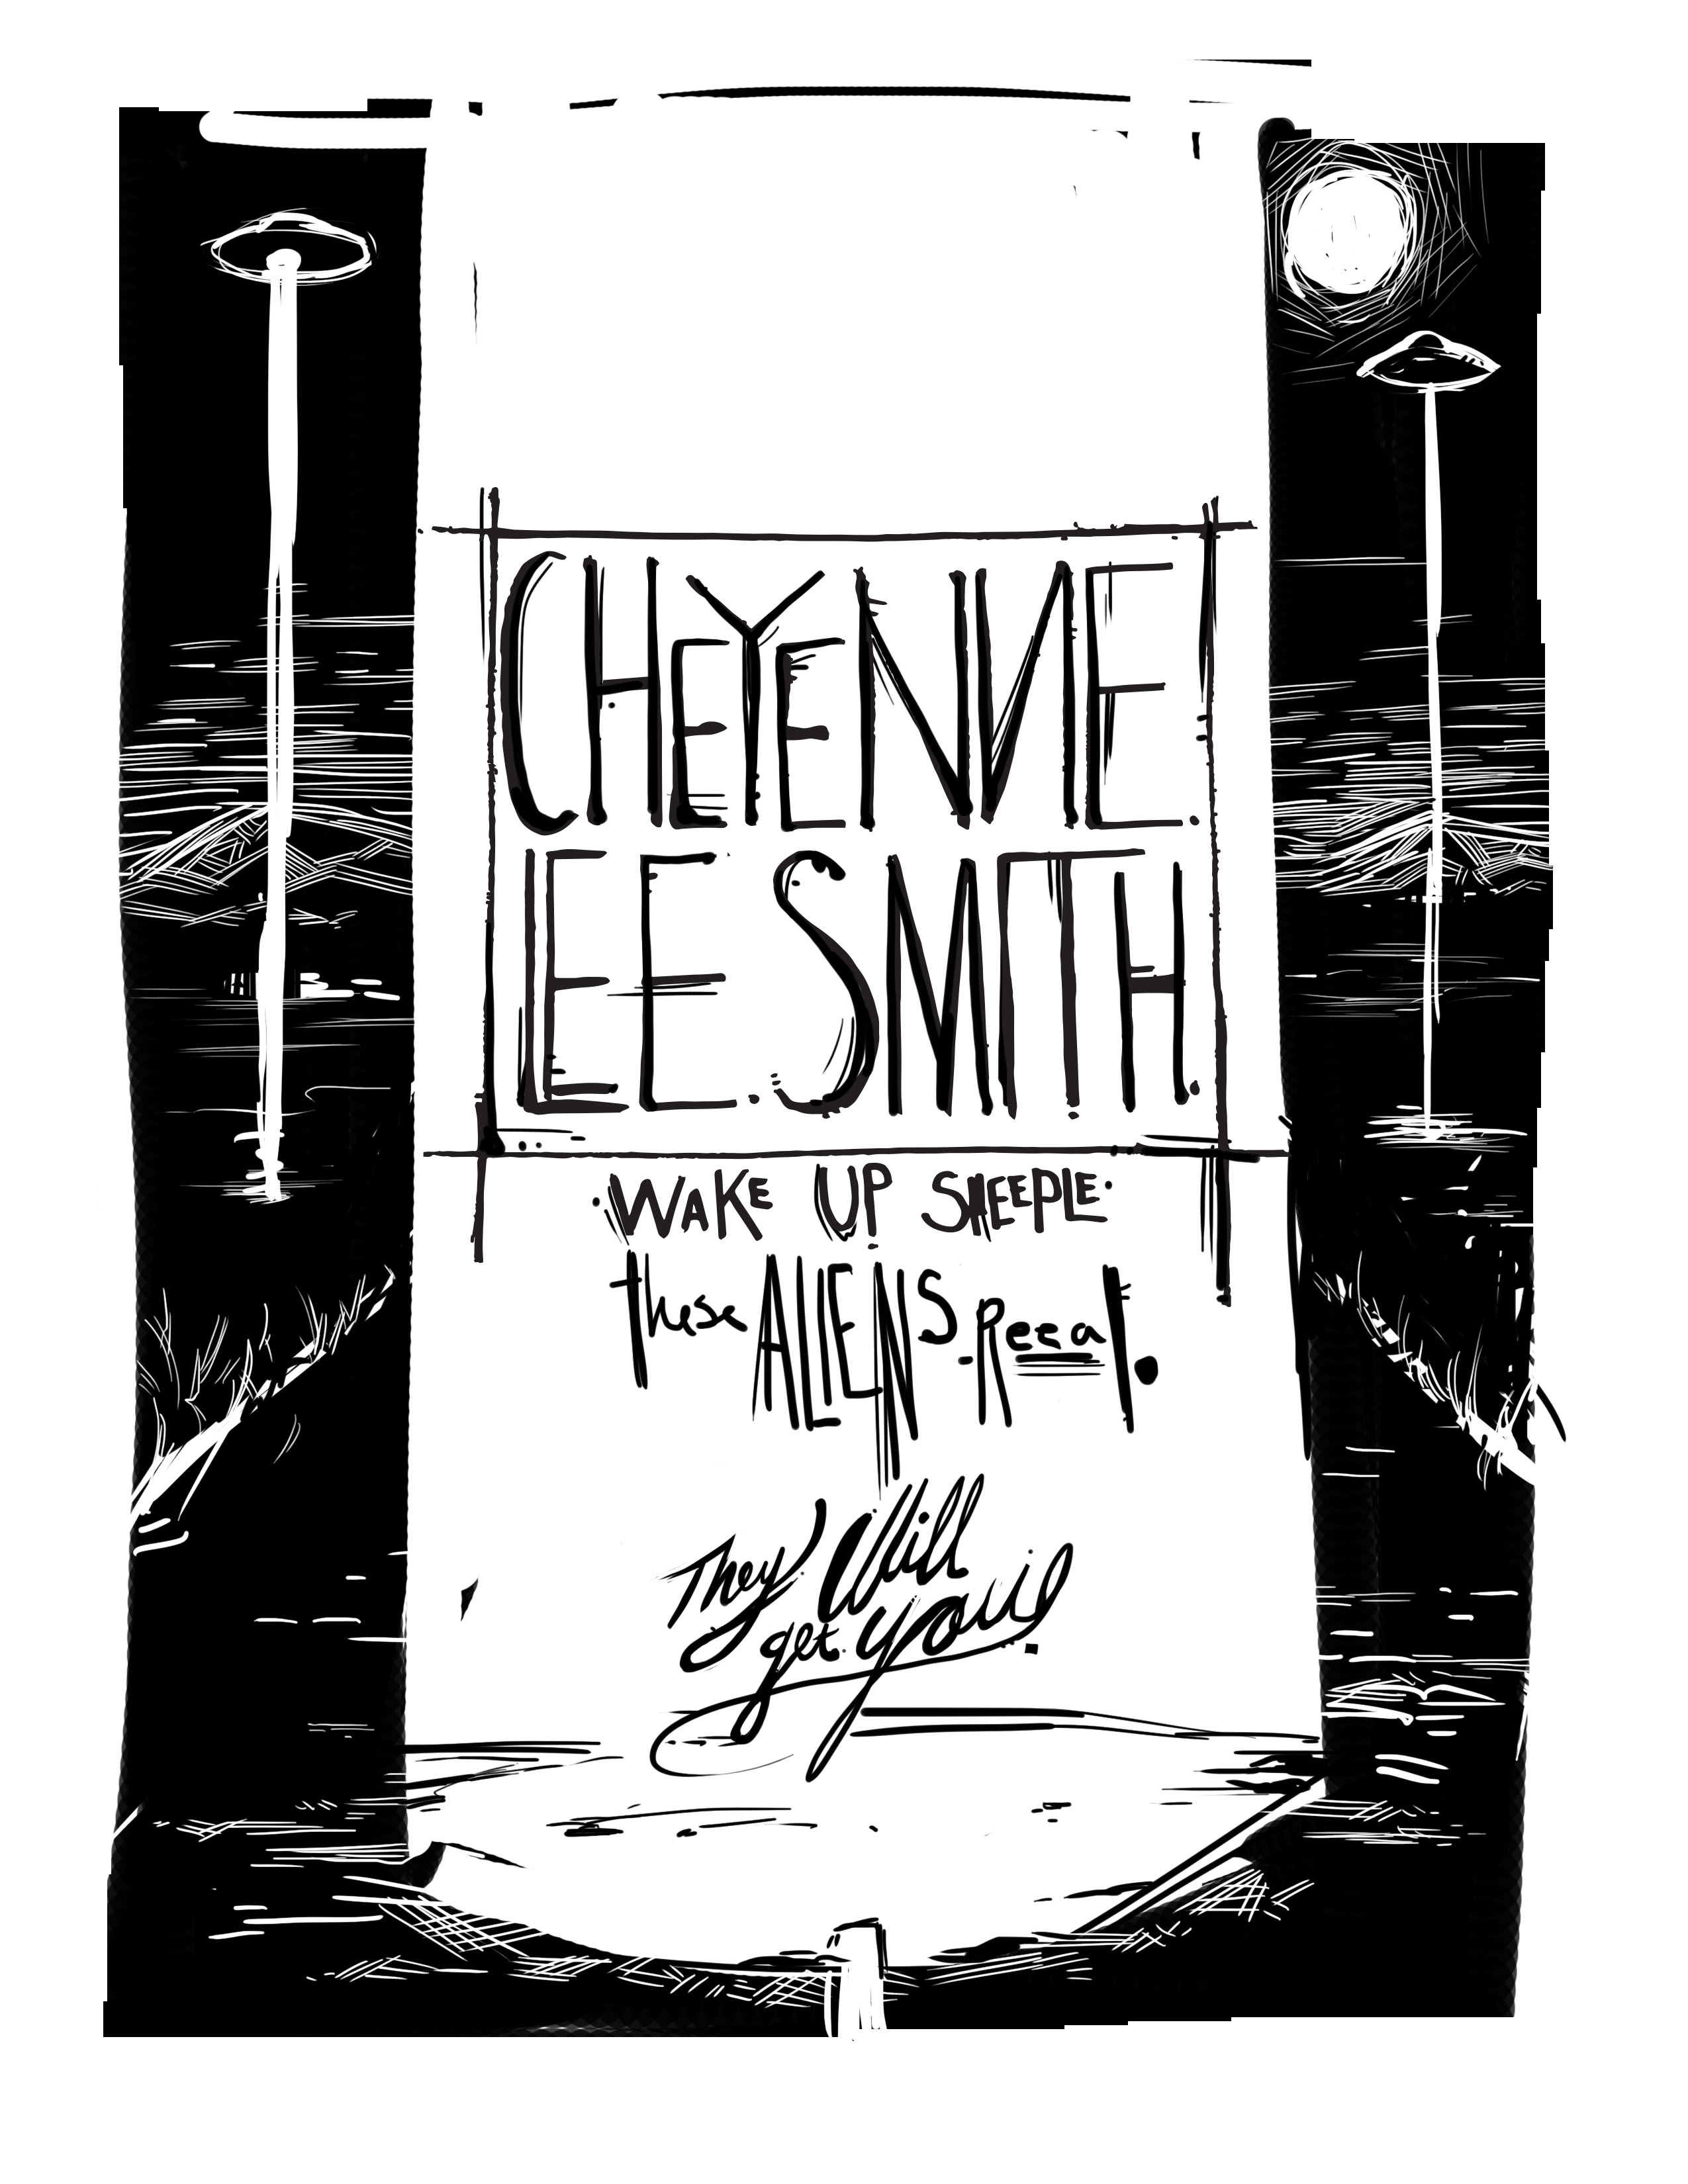 CHEYENNE.
LEE.SMITH.
·WAKE UP SHEEPLE·
these ALIENS-Reeal.
They Will
get you!